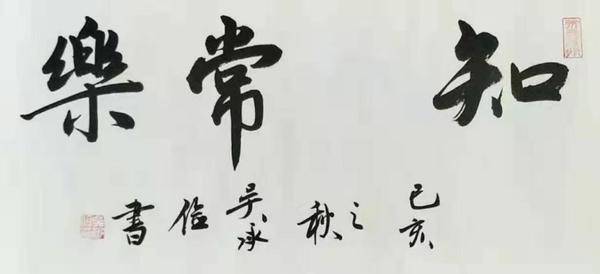 知常樂
己亥之秋吴承俭書